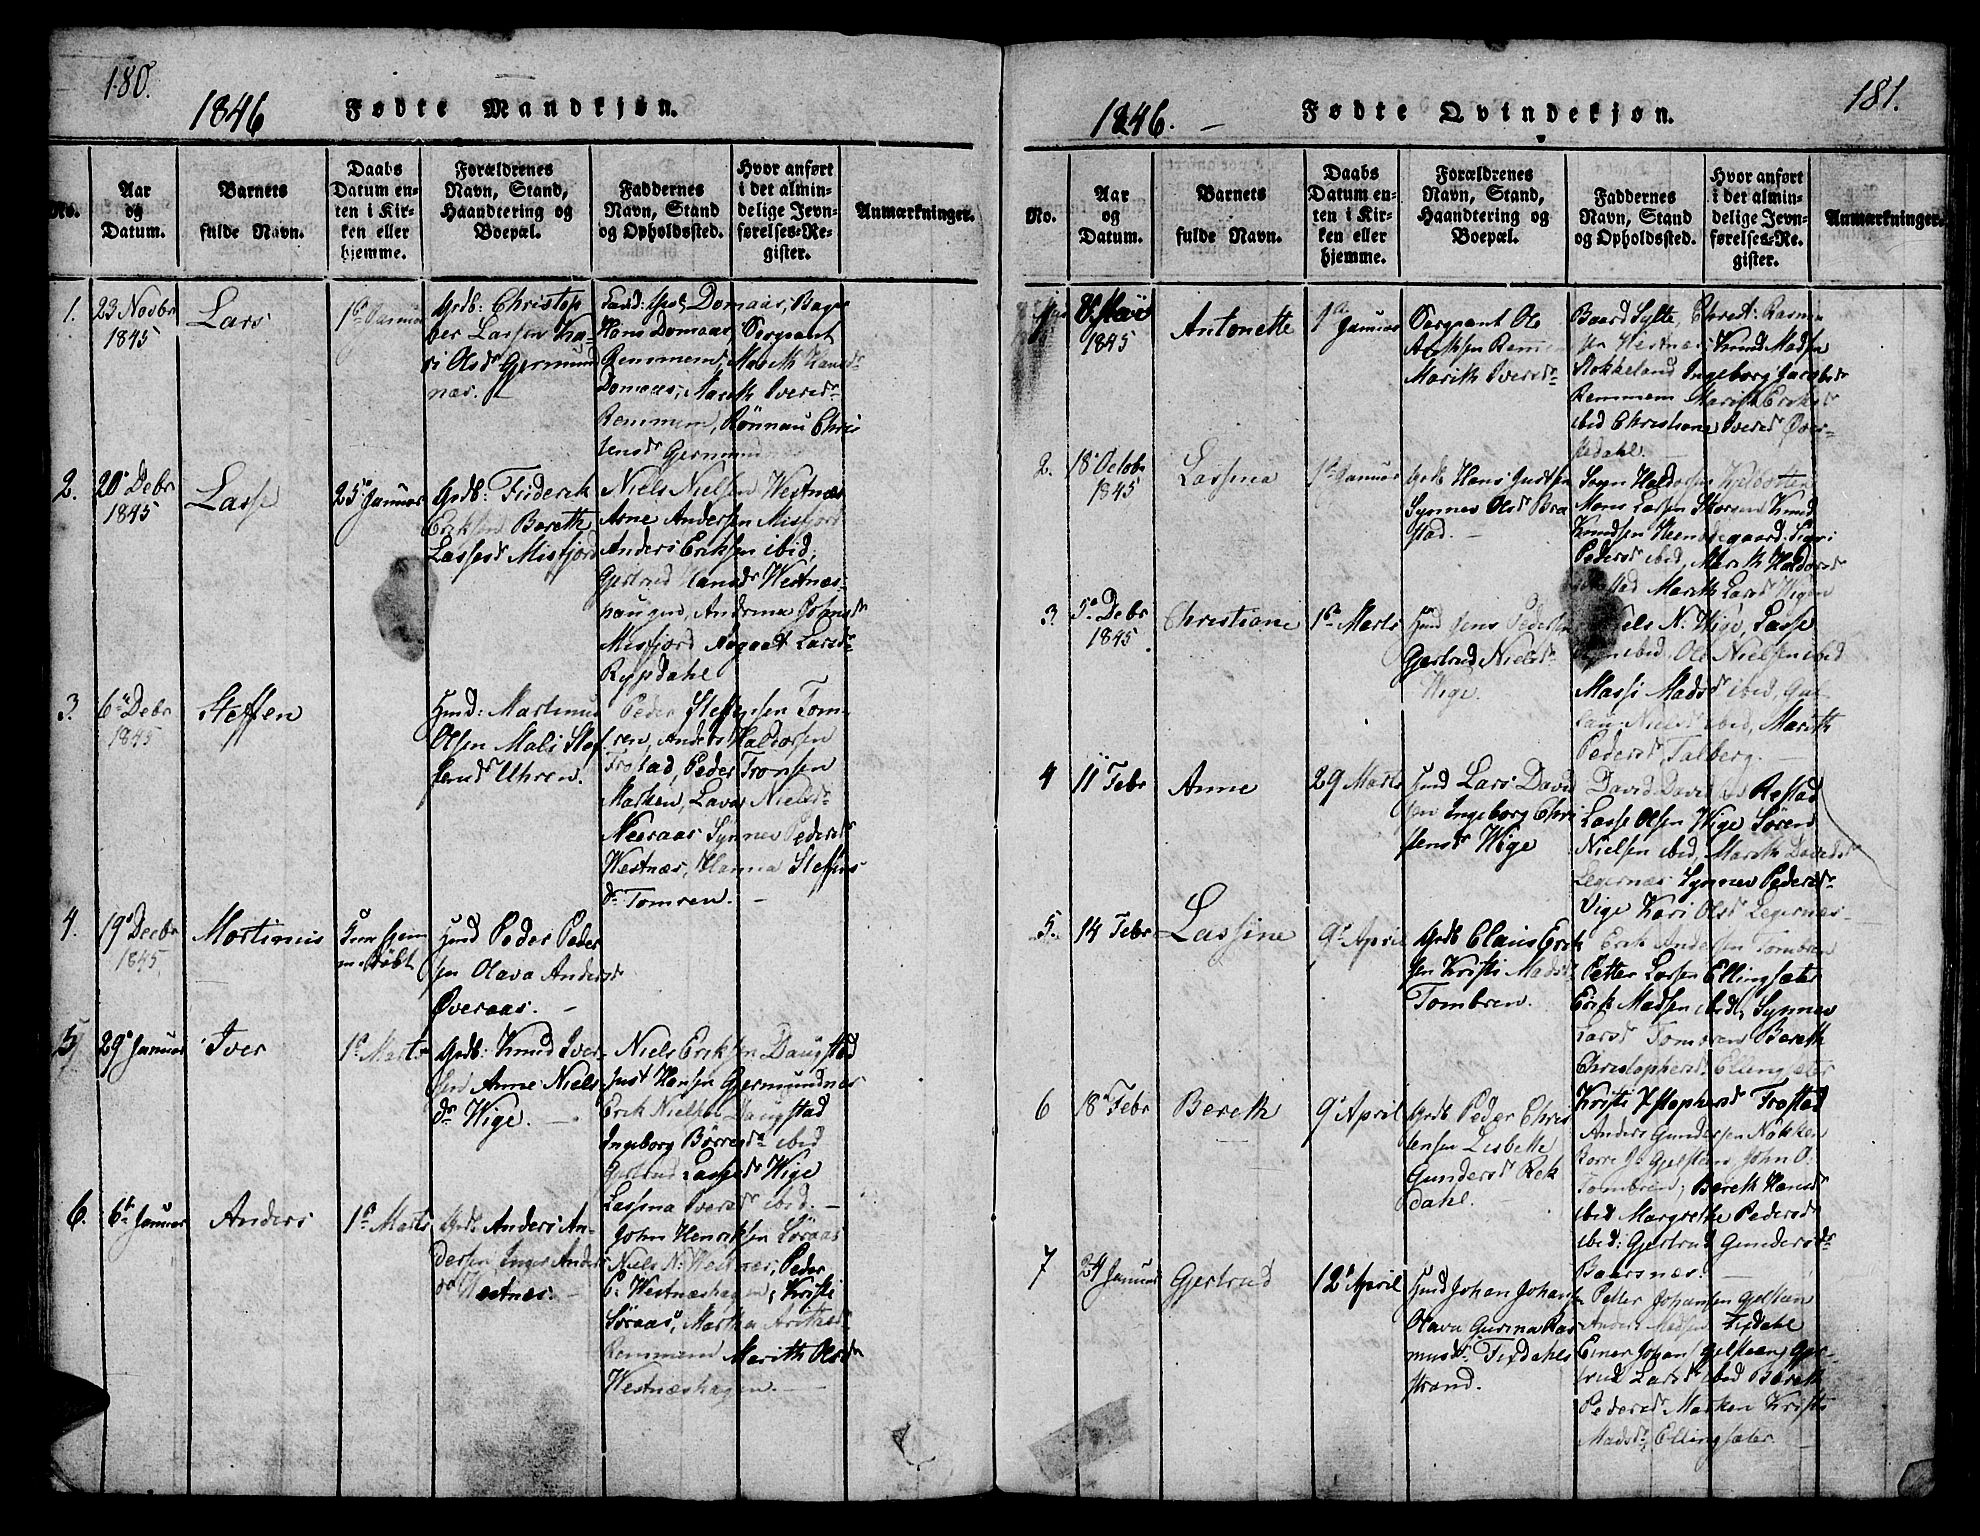 180.
1846 Fødte Mandkjøn.
No.
Aar
og
Datum.
Barnets
fulde Navn.
Daabs
Datum en-
ten i Kir-
ken eller
hjemme.
Forældrenes
Navn, Stand,
Haandtering og
Boepæl.
Faddernes
Navn, Stand
og Opholdssted.
Hvor anført
i det almin-
delige Jevn-
førelses-Re-
gister.
Anmærkninger.
1. 23 Novbr
1845
Lars
1e Januar
Grdb: Christop
her Larsen Ka-
ri Olsdr Germund
næs.
Domaas,
Hans Domaas, Sergeant
Remmem, Marith Hansdr
Domaas, Marith Iversdr
Remmem, Rönnau Chris
tensdr Germund
2. 20 Debr
1845
Lasse
25 Januar
Grdb: Friderik
Eriksen Bereth
Lassesdr Misfjord
Niels Nielsen Westnæs
Arne Andersen Misfjord
Anders Eriksen ibid,
Gjertrud Hansdr Westnæs-
haugen, Anderine Johansdr
Misfjord Aagaat Larsdr
Rypdahl
3. 6 Debr
1845
Steffen
Huusd: Martinus
Olsen Mali Stef
fensdr Uhren.
Peder Steffensen Tom-
ren, Anders Haldorsen
Trostad, Peder Tronsen
Marken, Lava Nielsdr
Neeraas Synnev Pedersdr
Westnæs, Hanna Steffens
dr Tomren. -
4. 19 Decbr
1845.
Martinus
Kun hjem
me døbt
Huusd Peder Peder
sen Olava Andersdr
Øveraas. -
5. 29 Januar
Iver
1e Marts
Grdb: Knud Iver-
sen Anne Niels
dr Wige. -
Niels Eriksen Daugstad
Just Hansen Germundnæs
Erik Nielsen Daugstad
Ingeborg Börresdr ibid
Gjertrud Lassesdr Wige
Lassina Iversdr ibid. -
6. 6 Januar
Anders
1e Marts
Grdb Anders An-
dersen Inger Anders
dr Westnæs. -
John Henriksen Söraas
Niels N: Westnæs, Peder
P: Westnæshagen, Kristi
Söraas, Martha Arithsdr
Remmem Marith Olsdr
Westnæshagen. -
181.
1846. - Fødte Qvindekjøn.
No.
Aar
og
Datum.
Barnets
fulde Navn.
Daabs
Datum en-
ten i Kir-
ken eller
hjemme.
Forældrenes
Navn, Stand,
Haandtering og
Boepæl.
Faddernes
Navn, Stand
og Opholdssted.
Hvor anført
i det almin-
delige Jevn-
førelses-Re-
gister.
Anmærkninger.
1845
Antonette
1e Januar
Sergeant Ole
Remmem
Marith Iversdr
Baard Sylte, Christ: Rasmu
sen Westnæs Knud Madsen
Stokkeland Ingeborg Jacobsdr
Remmem Marith Eriksdr
ibid Christiane Iversdr Øver-
stedahl. -
2. 18 Octobr
1845
Lassina
1e Januar
Grdb Hans Justsen
Synnev Olsdr Bra
stad. -
Haldorsen
Mons Larsen Knud
Knudsen Sigri
Pedersdr ibid, Marith Haldorsdr
Marith Larsdr Wigen
3. 5 Debr
1845.
Christiane
1e Marts
Huusd Jens Peders
Gjertrud Nielsdr
Wige.
Niels N: Wige, Lasse
ibid, Ole Nielsen ibid
Massi Madsdr ibid, Gul-
lau Nielsdr ibid, Marith
Pedersdr Talberg. -
4 11 Febr
Anne
29 Marts
Huusd Lars David
sen Ingeborg Chri
stensdr Wige
David Davidsen Rostad
Lasse Olsen Wige Sören
Nielsen ibid, Marith Davidsdr
Legernæs Synnev Pedersdr
Vige Kari Olsdr Legernæs -
5. 14 Febr
Lassine
9 April
Grdb Claus Erik
sen Kristi Madsdr
Tombren.
Erik Andersen Tombren
Petter Larsen Ellingsæter
Erik Madsen ibid, Synnev
Larsdr Tomren Bereth
Christophersdr Ellingsæter
6 18 Febr
Bereth
9 April
Grdb Peder Chris
tensen Lisbette
Gundersdr Rek
dahl. -
Kristi Xstophersdr Trostad
Anders Gundersen Nökken
Börre J: Gjelsteen, John O:
Tombren, Bereth Hansdr
ibid Margrethe Pedersdr
ibid: Gjertrud Gundersdr
Baarsnæs.
7 24 Januar
Gjertrud
12 April
Huusd Johan Johans
Olava Gurina Ras
musdr Fixdahls
strand.
Petter Johansen Gjelsteen
Anders Madsen Fixdahl
Einer Johan Gjelsteen, Gjer-
trud Larsdr ibid Bereth
Pedersdr Marken Kristi
Madsdr, Ellingsæter